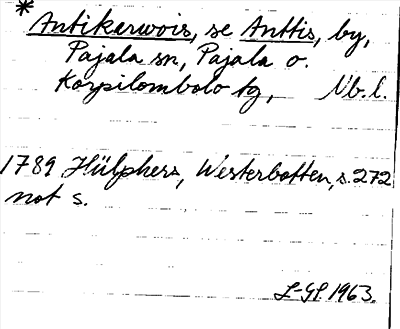 * Antikerwois, se Anttis, by,
Pajala sn, Pajala o.
Korpilombolo tg, Nb. l.
1789 Hülphers, Westerbotten, s. 272
not s.
L-GL 1963.